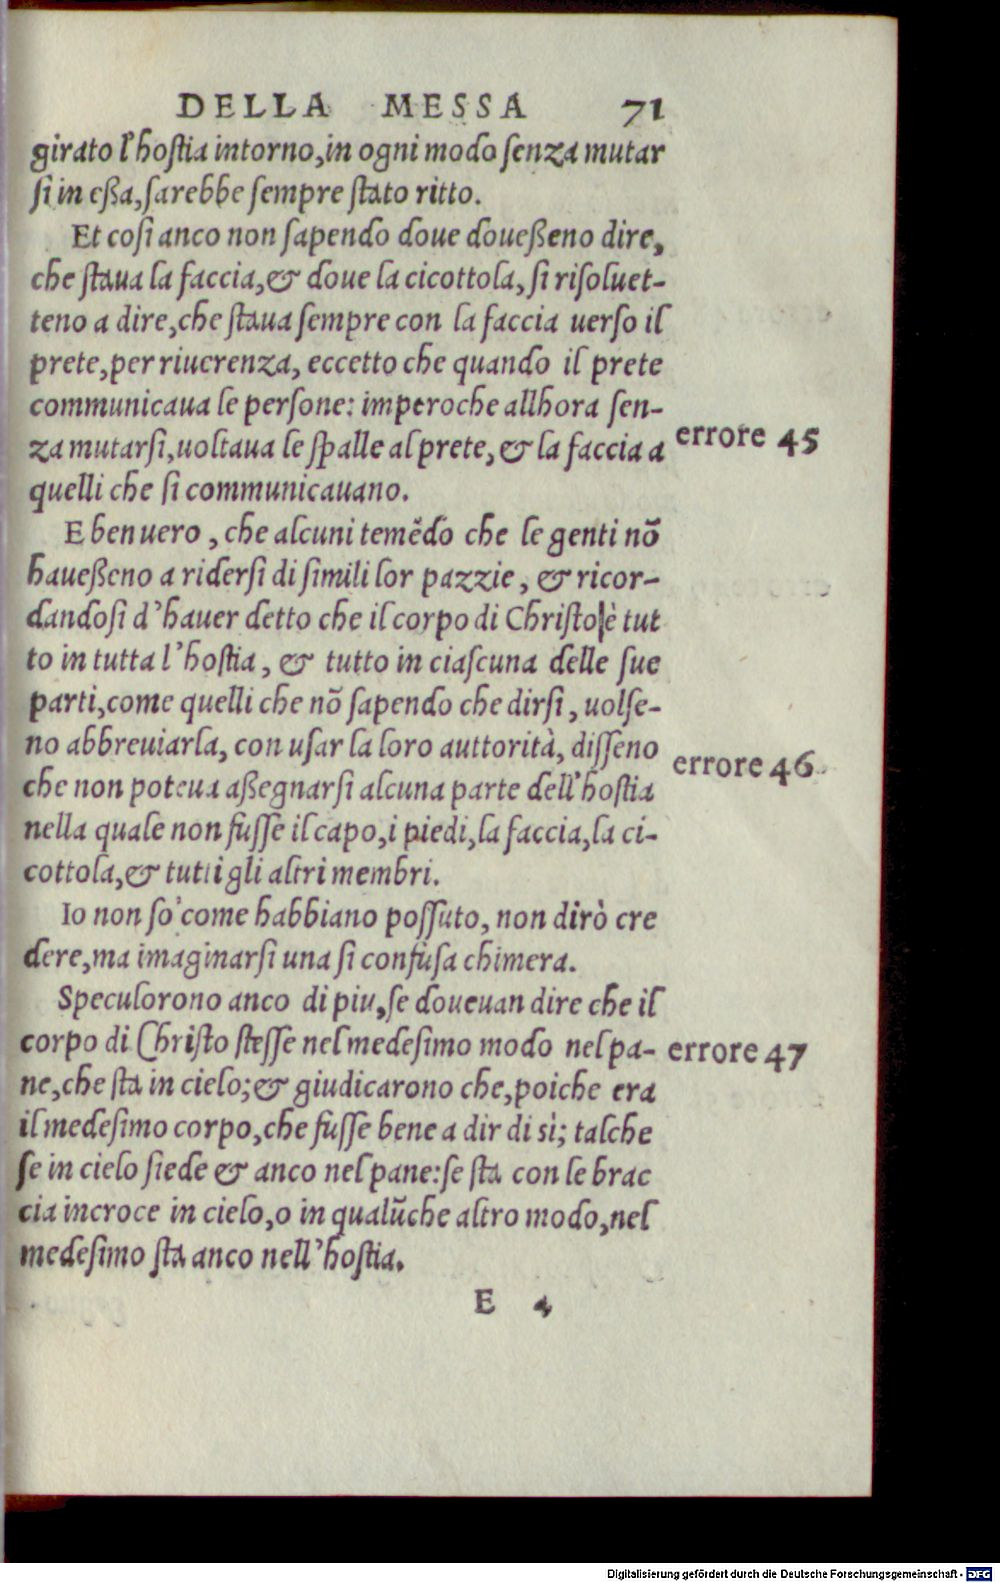 DELLA MESSA 71
girato l'hoſtia intorno,in ogni modo ſenza mutar
ſi in eßa,ſarebbe ſempre ſtato ritto.
Et coſi anco non ſapendo doue doueßeno dire,
che ſtaua la faccia,& doue la cicottola, ſi riſoluet-
teno a dire,che ſtaua ſempre con la faccia uerſo il
prete,per riuerenza, eccetto che quando il prete
communicaua le perſone: imperoche allhora ſen-
za mutarſi,uoltaua le ſpalle al prete,& la faccia a
errore 45
quelli che ſi communicauano.
E ben uero , che alcuni temẽdo che le genti nõ
haueßeno a riderſi di ſimili lor pazzie , & ricor-
dandoſi d'hauer detto che il corpo di Chriſto è tut
to in tutta l'hoſtia , & tutto in ciaſcuna delle ſue
parti,come quelli che nõ ſapendo che dirſi , uolſe-
no abbreuiarla, con uſar la loro auttorità, diſſeno
errore 46
che non poteua aßegnarſi alcuna parte dell'hoſtia
nella quale non fuſſe il capo,i piedi,la faccia,la ci-
cottola,& tutti gli altri membri.
Io non ſo come habbiano poſſuto, non dirò cre
dere,ma imaginarſi una ſi confuſa chimera.
Speculorono anco di piu,ſe doueuan dire che il
corpo di Chriſto ſteſſe nel medeſimo modo nel pa-
errore 47
ne,che ſta in cielo;& giudicarono che,poiche era
il medeſimo corpo,che fuſſe bene a dir di sì; talche
ſe in cielo ſiede & anco nel pane:ſe ſta con le brac
cia incroce in cielo,o in qualũche altro modo,nel
medeſimo ſta anco nell'hoſtia.
E 4
Digitalisierung gefördert durch die Deutsche Forschungsgemeinschaft - DFG